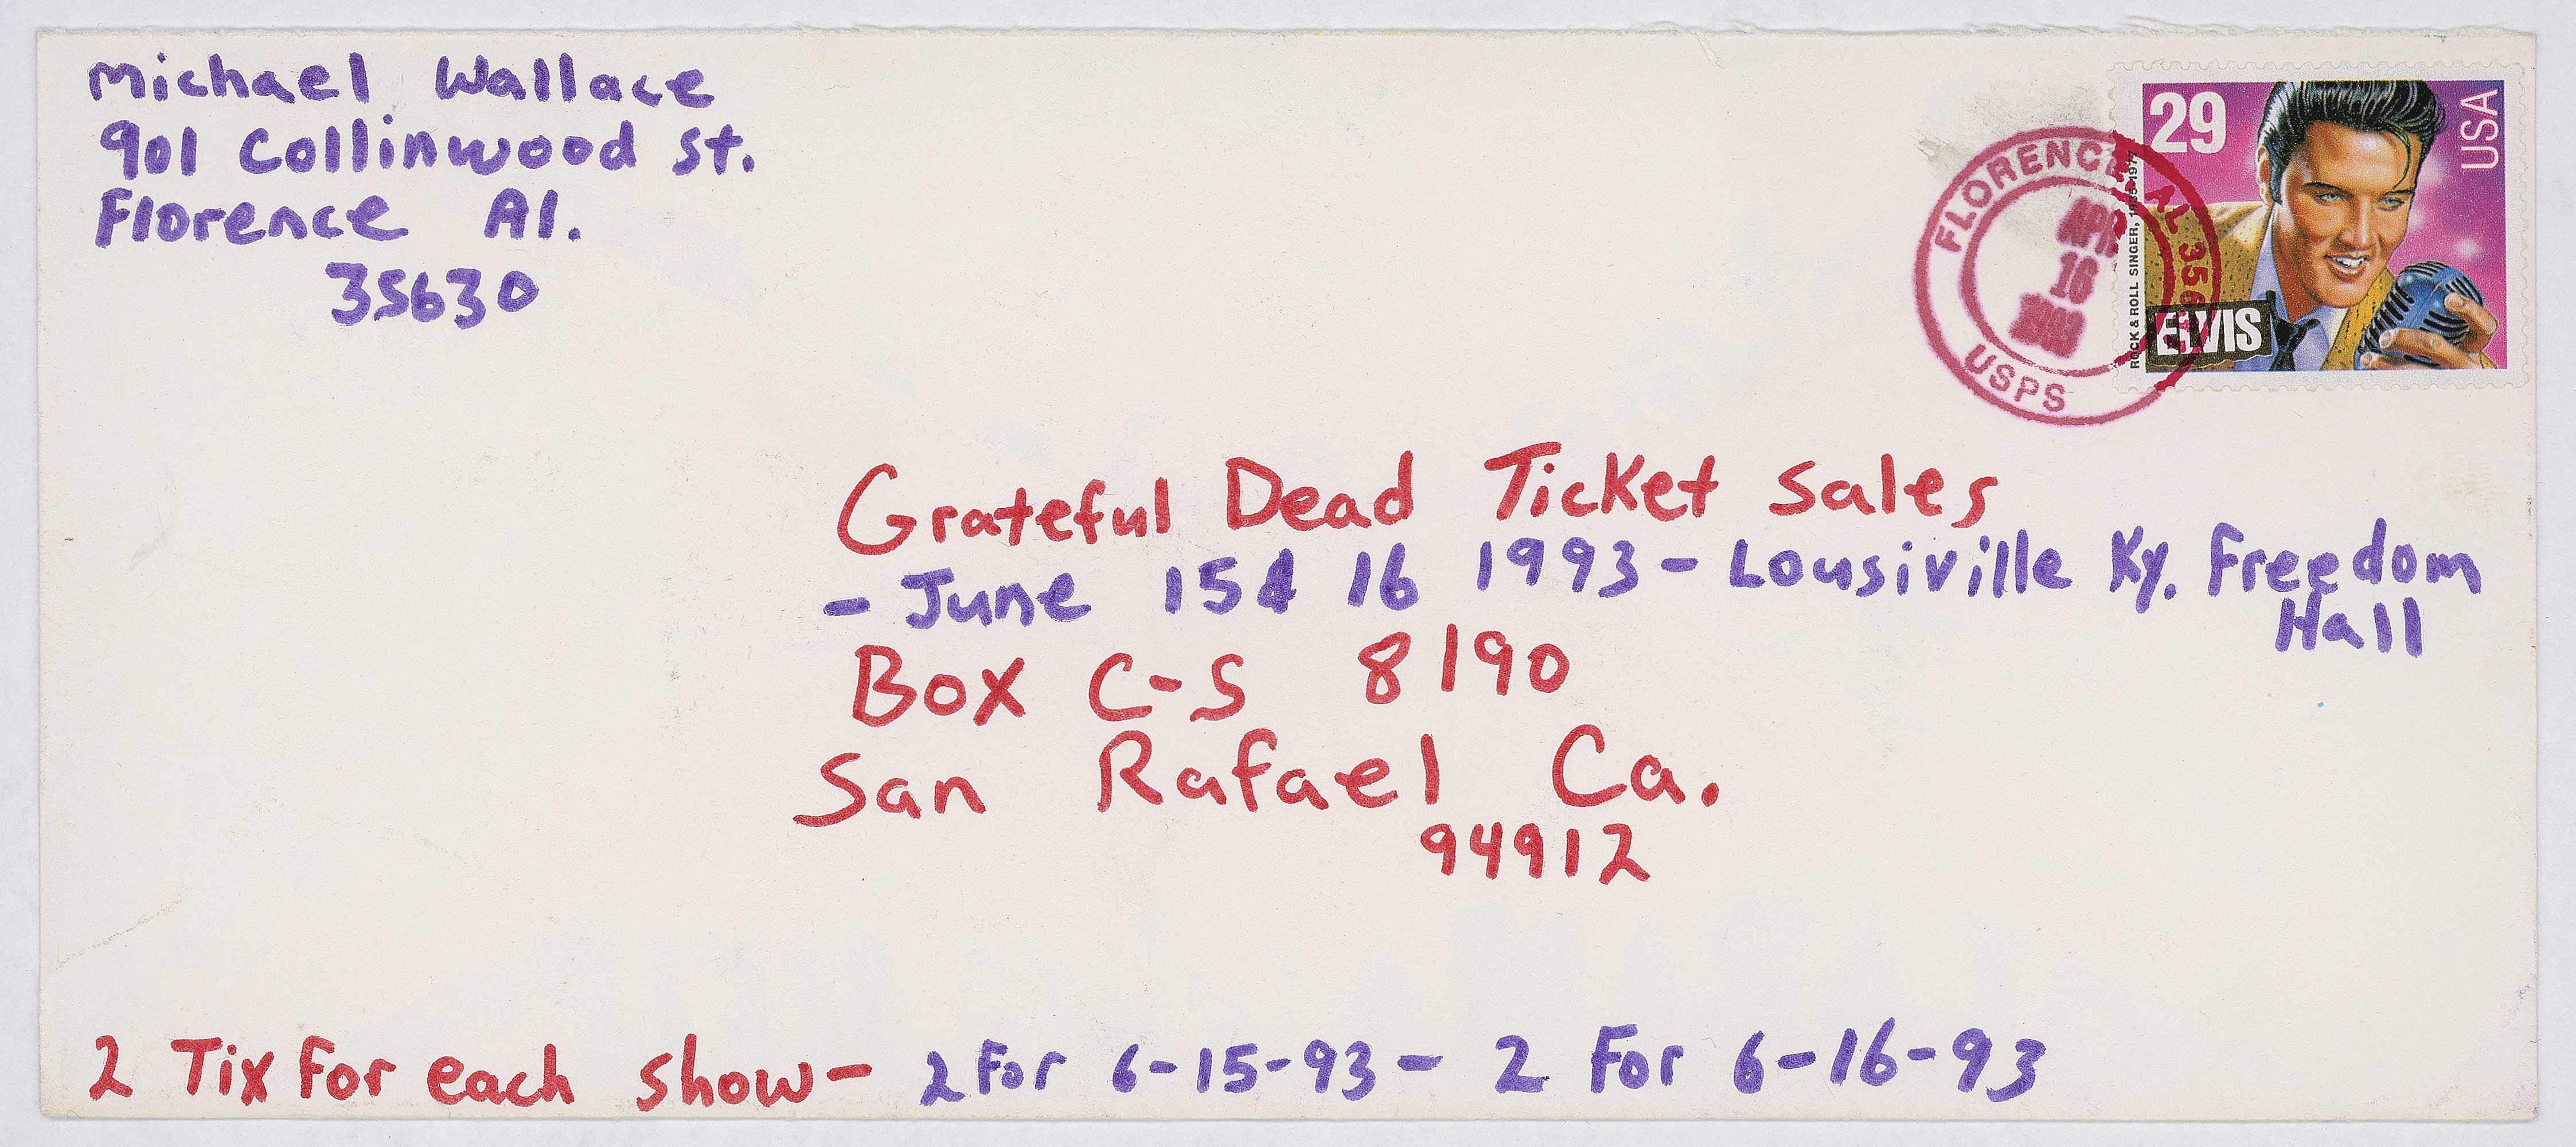 Michael Wallace
901 Collinwood St.
Florence Al.
35630
29
USA
ROCK & ROLL SINGER, 1935-1977
ELVIS
FLORENCE, AL
APR
16
1993
USPS
Grateful Dead Ticket Sales
- June 15& 16 1993 - Lousiville Ky. Freedom
Hall
Box C-S 8190
San Rafael Ca.
94912
2 Tix For each show- 2 For 6-15-93- 2 For 6-16-93